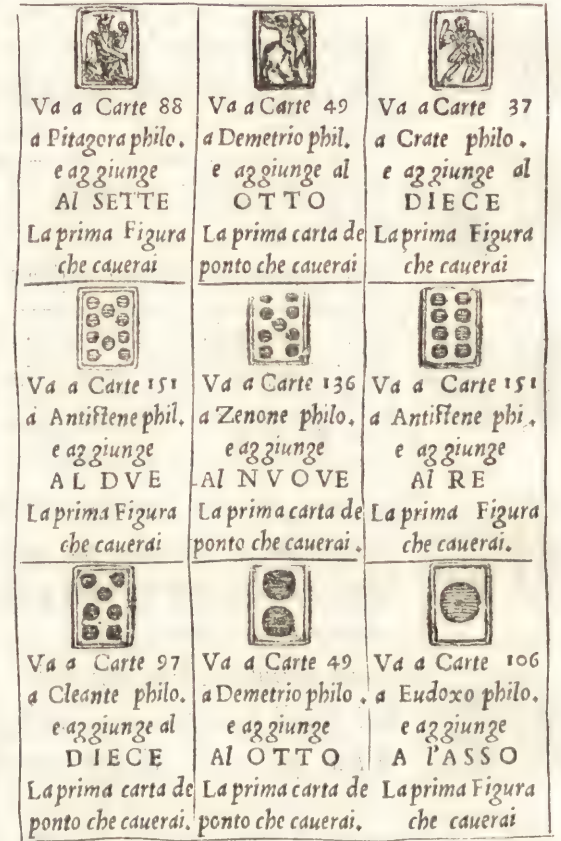 Va a Carte 88
a Pitagora philo.
e aggiunge
Al SETTE
La prima Figura
che cauerai
Va a Carte 49
a Demetrio phil.
e aggiunge al
OTTO
La prima carta de
ponto che cauerai
Va a Carte 37
a Crate philo.
e aggiunge al
DIECE
La prima Figura
che cauerai
Va a Carte 151
a Antistene phil.
e aggiunge
AL DVE
La prima Figura
che cauerai
Va a Carte 136
a Zenone philo.
e aggiunge
Al NVOVE
La prima carta de
ponto che cauerai.
Va a Carte 151
a Antistene phi.
e aggiunge
Al RE
La prima Figura
che cauerai.
Va a Carte 97
a Cleante philo.
e aggiunge al
DIECE
La prima carta de
ponto che cauerai.
Va a Carte 49
a Demetrio philo.
e aggiunge
Al OTTO
La prima carta de
ponto che cauerai.
Va a Carte 106
a Eudoxo philo.
e aggiunge
A l'ASSO
La prima Figura
che cauerai